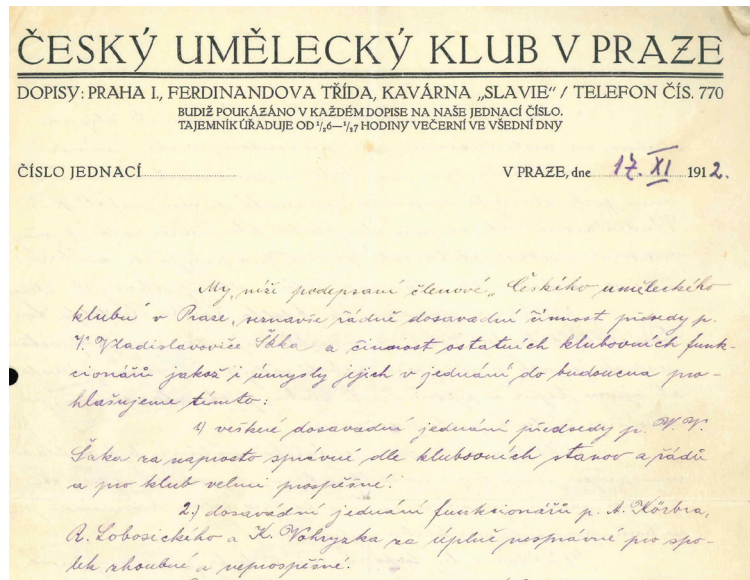 ČESKÝ UMĚLECKÝ KLUB V PRAZE
DOPISY: PRAHA I., FERDINANDOVA TŘÍDA, KAVÁRNA „SLAVIE“ / TELEFON ČÍS. 770
BUDIŽ POUKÁZÁNO V KAŽDÉM DOPISE NA NAŠE JEDNACÍ ČÍSLO.
TAJEMNÍK ÚŘADUJE OD ½6—½7 HODINY VEČERNÍ VE VŠEDNÍ DNY
ČÍSLO JEDNACÍ
V PRAZE, dne 17. XI 1912.
My, níží podepsaní členové „Českého uměleckého
klubu“ v Praze, seznavše řádně dosavadní činnost předsedy p.
V. Vladislavoviče Šaka a činnost ostatních klubovních funk-
cionářů jakož i úmysly jejich v jednání do budoucna pro-
hlašujeme tímto:
1) veškeré dosavadní jednání předsedy p. V. V.
Šaka za naprosto správné dle klubovních stanov a řádů
a pro klub velmi prospěšné.
2.) dosavádní jednání funkcionářů p. A. Körbra,
R. Lobosického a K. Vohryzka za úplně nesprávné pro spo-
lek zhoubné a neprospěšné.